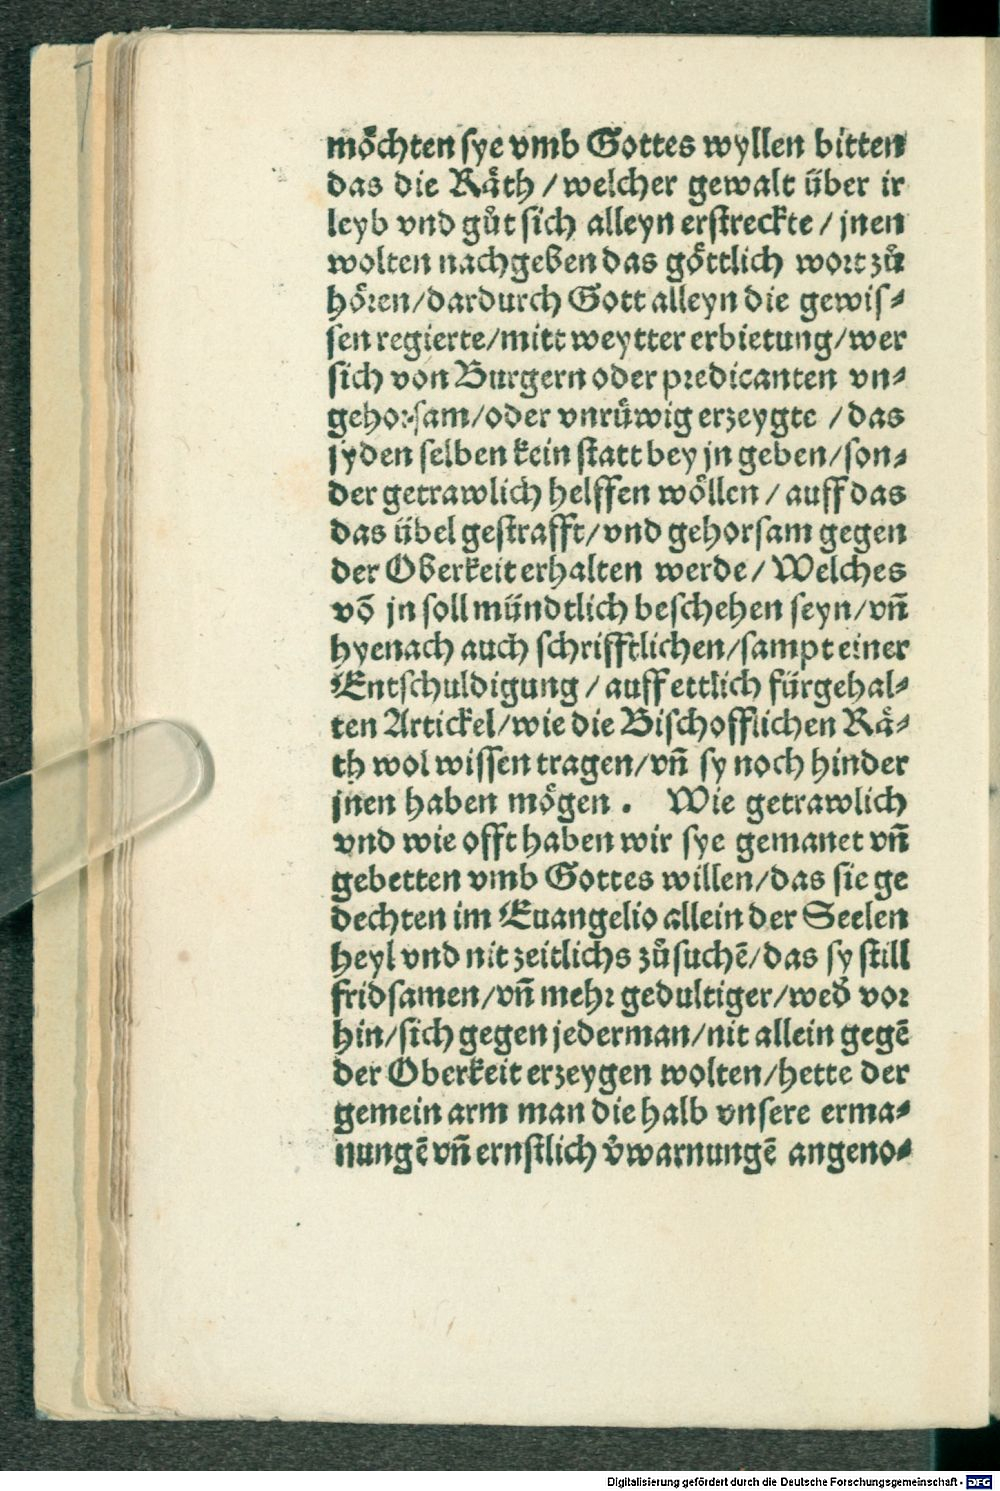 möchten sye vmb Gottes wyllen bitten
das die Räth / welcher gewalt über ir
leyb vnd gůt sich alleyn erstreckte / jnen
wolten nachgeben das göttlich wort zů
hören / dardurch Gott alleyn die gewis⸗
sen regierte / mitt weytter erbietung / wer
sich von Burgern oder predicanten vn⸗
gehorsam / oder vnrüwig erzeygte / das
jyden selben kein statt bey jn geben / son⸗
der getrawlich helffen wöllen / auff das
das übel gestrafft / vnd gehorsam gegen
der Oberkeit erhalten werde / Welches
võ jn soll mündtlich beschehen seyn / vñ
hyenach auch schrifftlichen / sampt einer
Entschuldigung / auff ettlich fürgehal⸗
ten Artickel / wie die Bischofflichen Rä⸗
th wol wissen tragen / vñ sy noch hinder
jnen haben mögen . Wie getrawlich
vnd wie offt haben wir sye gemanet vñ
gebetten vmb Gottes willen / das sie ge
dechten im Euangelio allein der Seelen
heyl vnd nit zeitlichs zůsuchẽ / das sy still
fridsamen / vñ mehr gedultiger / wed̕ vor
hin / sich gegen jederman / nit allein gegẽ
der Oberkeit erzeygen wolten / hette der
gemein arm man die halb vnsere erma⸗
nungẽ vñ ernstlich v̕warnungẽ angeno⸗
Digitalisierung gefördert durch die Deutsche Forschungsgemeinschaft - DFG